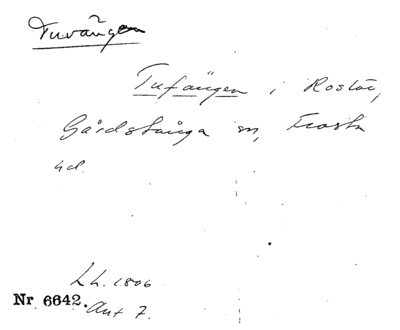 Tuvången
Tufången i Roslöv,
Gårdstånga sn, Frosta
hd.
Lh. 1806
Nr 6642. Akt 7.